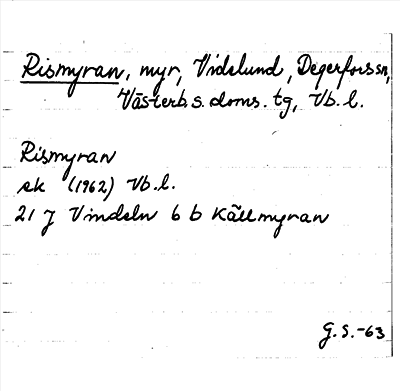 Rismyran, myr, Vidslund, Degerfors sn,
Västerb. s. doms. tg, Vb. l.
Rismyran
ek (1962) Vb. l.
21 J Vindeln 6 b Källmyran
G. S. -63